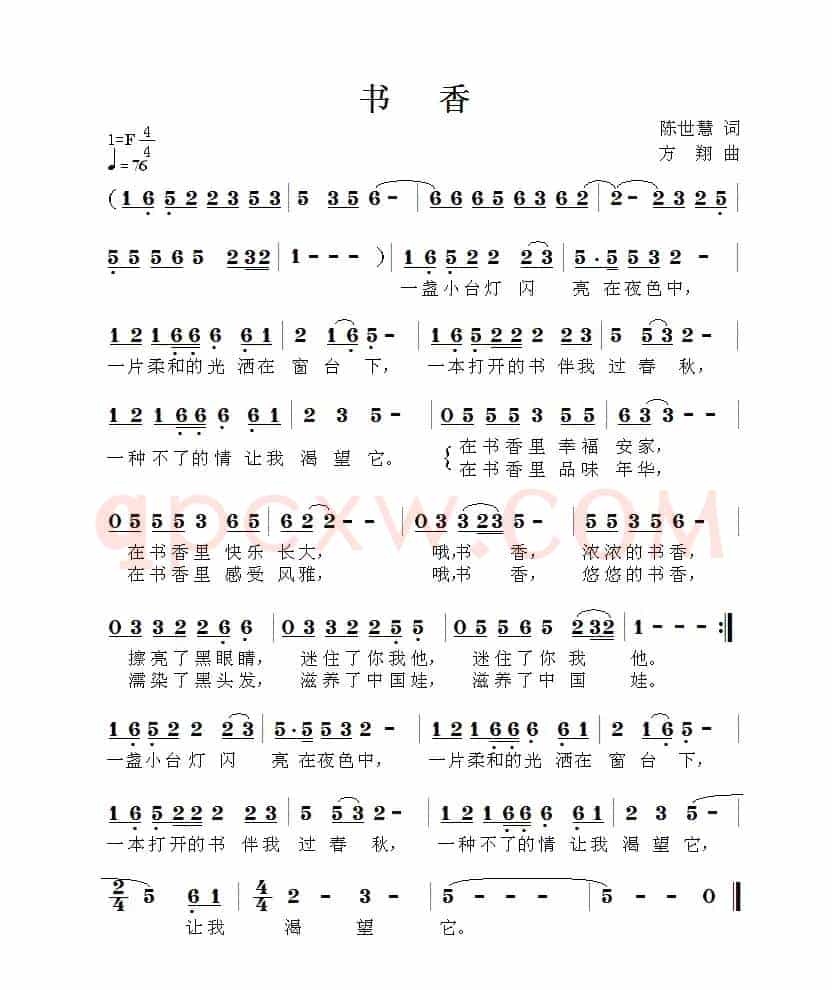 书 香
陈世慧 词
1=F 4/4
♩=76
方 翔 曲
(1 6 5 2 2 3 5 3 | 5 3 5 6 - | 6 6 6 5 6 3 6 2 | 2 - 2 3 2 5 |
5 5 5 6 5 2 3 2 | 1 - - - ) | 1 6 5 2 2 2 3 | 5 · 5 5 5 3 2 - |
一盏小台灯 闪 亮 在夜色中,
1 2 1 6 6 6 6 1 | 2 1 6 5 - | 1 6 5 2 2 2 2 3 | 5 5 3 2 - |
一片柔和的光 洒在 窗 台 下, 一本打开的书 伴我 过 春 秋,
1 2 1 6 6 6 6 1 | 2 3 5 - | 0 5 5 5 3 5 5 | 6 3 3 - - |
一种 不了的情 让我 渴 望 它。 在书香里 幸福 安家,
在书香里 品味 年华,
0 5 5 5 3 6 5 | 6 2 2 - - | 0 3 3 2 3 5 - | 5 5 3 5 6 - |
在书香里 快乐 长大, 哦,书 香, 浓浓的书香,
在书香里 感受 风雅, 哦,书 香, 悠悠的书香,
0 3 3 2 2 6 6 | 0 3 3 3 2 2 5 5 | 0 5 5 6 5 2 3 2 | 1 - - - :|
擦亮了黑眼睛, 迷住了你我他, 迷住了你 我 他。
濡染了黑头发, 滋养了中国娃, 滋养了中 国 娃。
1 6 5 2 2 2 3 | 5 · 5 5 5 3 2 - | 1 2 1 6 6 6 6 1 | 2 1 6 5 - |
一盏小台灯 闪 亮 在夜色中, 一片柔和的光 洒在 窗 台 下,
1 6 5 2 2 2 2 3 | 5 5 3 2 - | 1 2 1 6 6 6 6 1 | 2 3 5 - |
一本打开的书 伴我 过 春 秋, 一种 不了的情 让我 渴 望 它,
2/4 5 6 1 | 4/4 2 - 3 - | 5 - - - | 5 - - 0 ‖
让我 渴 望 它。
qpcxw.COM